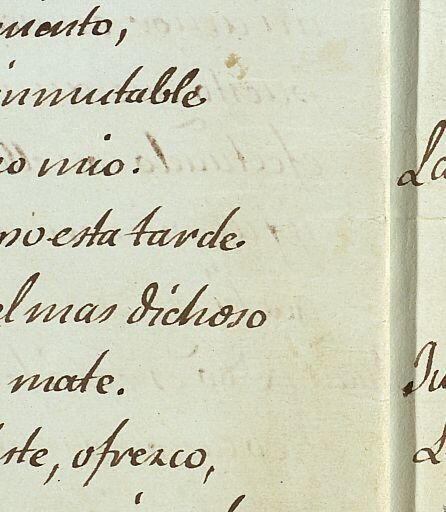 mento,
inmutable
io mio.
no esta tarde
el mas dichoso
mate.
ste, ofrezco,
La
Ju
L